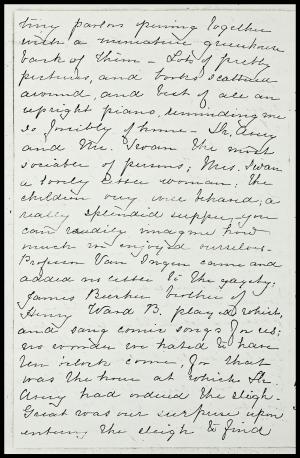 tiny parlors opening together
with a miniature greenhouse
back of them – Lots of pretty
pictures, and books scattered
around, and best of all an
upright piano, reminding me
so forcibly of home – Dr. Avery
and Mr. Swan the most
sociable of persons; Mrs. Swan
a lovely little woman; the
children very well behaved; a
really splendid supper – you
can readily imagine how
much we enjoyed ourselves –
Professor Van Ingen came and
added no little to the gayety;
James Beecher brother of
Henry Ward B. played which,
and sang comic songs for us;
no wonder we hated to have
ten o'clock come, for that
was the hour at which Dr.
Avery had ordered the sleigh –
Great was our surprise upon
entering the sleigh to find